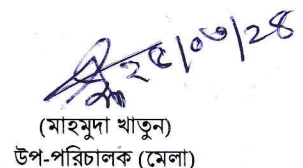 ২৫/০৩/২৪
(মাহমুদা খাতুন)
উপ-পরিচালক (মেলা)